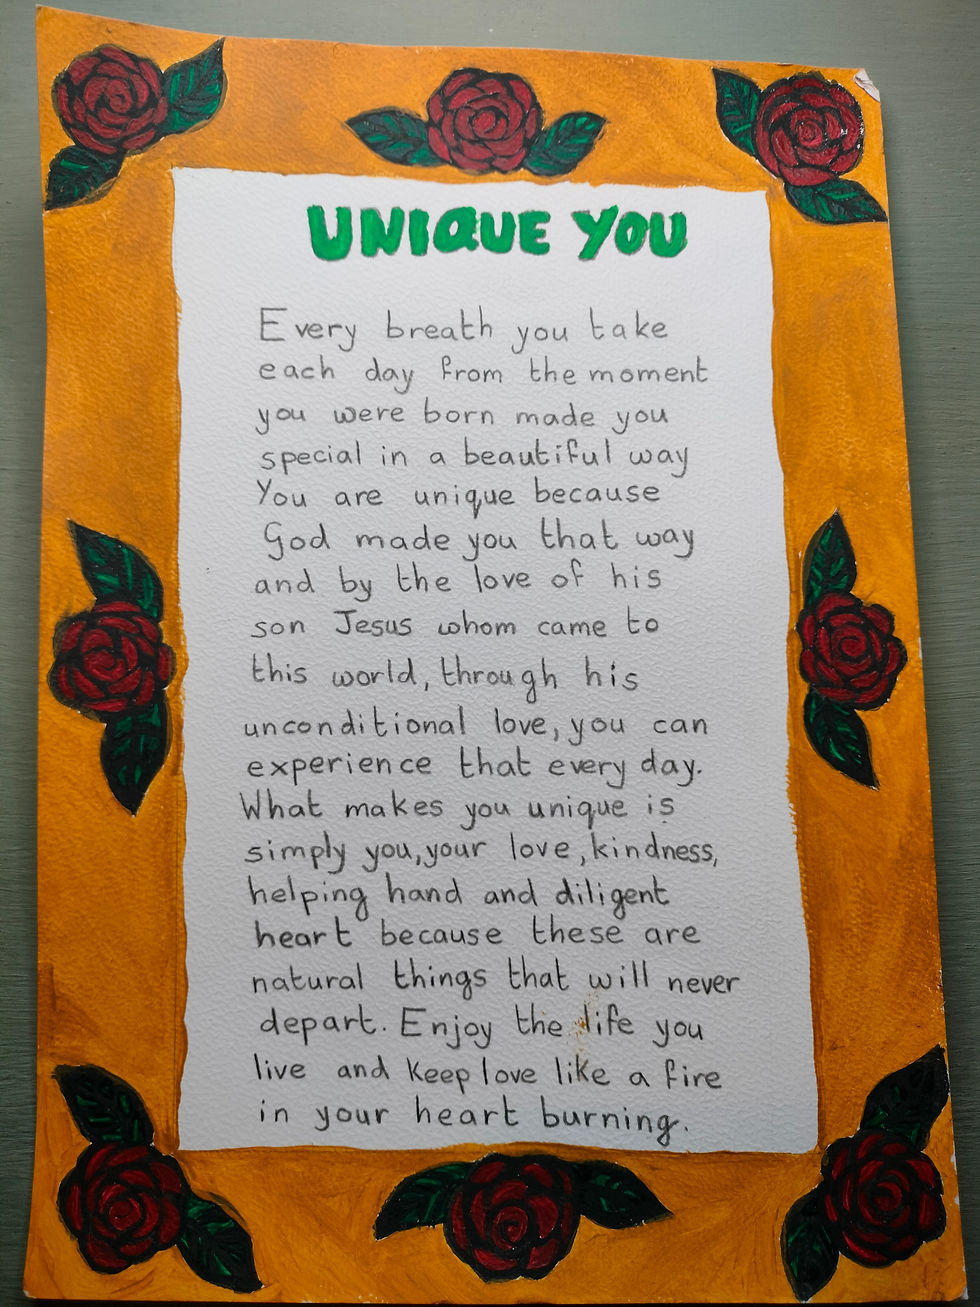 UNIQUE YOU
Every breath you take
each day from the moment
you were born made you
special in a beautiful way
You are unique because
God made you that way
and by the love of his
son Jesus whom came to
this world, through his
unconditional love, you can
experience that every day.
What makes you unique is
simply you, your love, kindness,
helping hand and diligent
heart because these are
natural things that will never
depart. Enjoy the life you
live and keep love like a fire
in your heart burning.